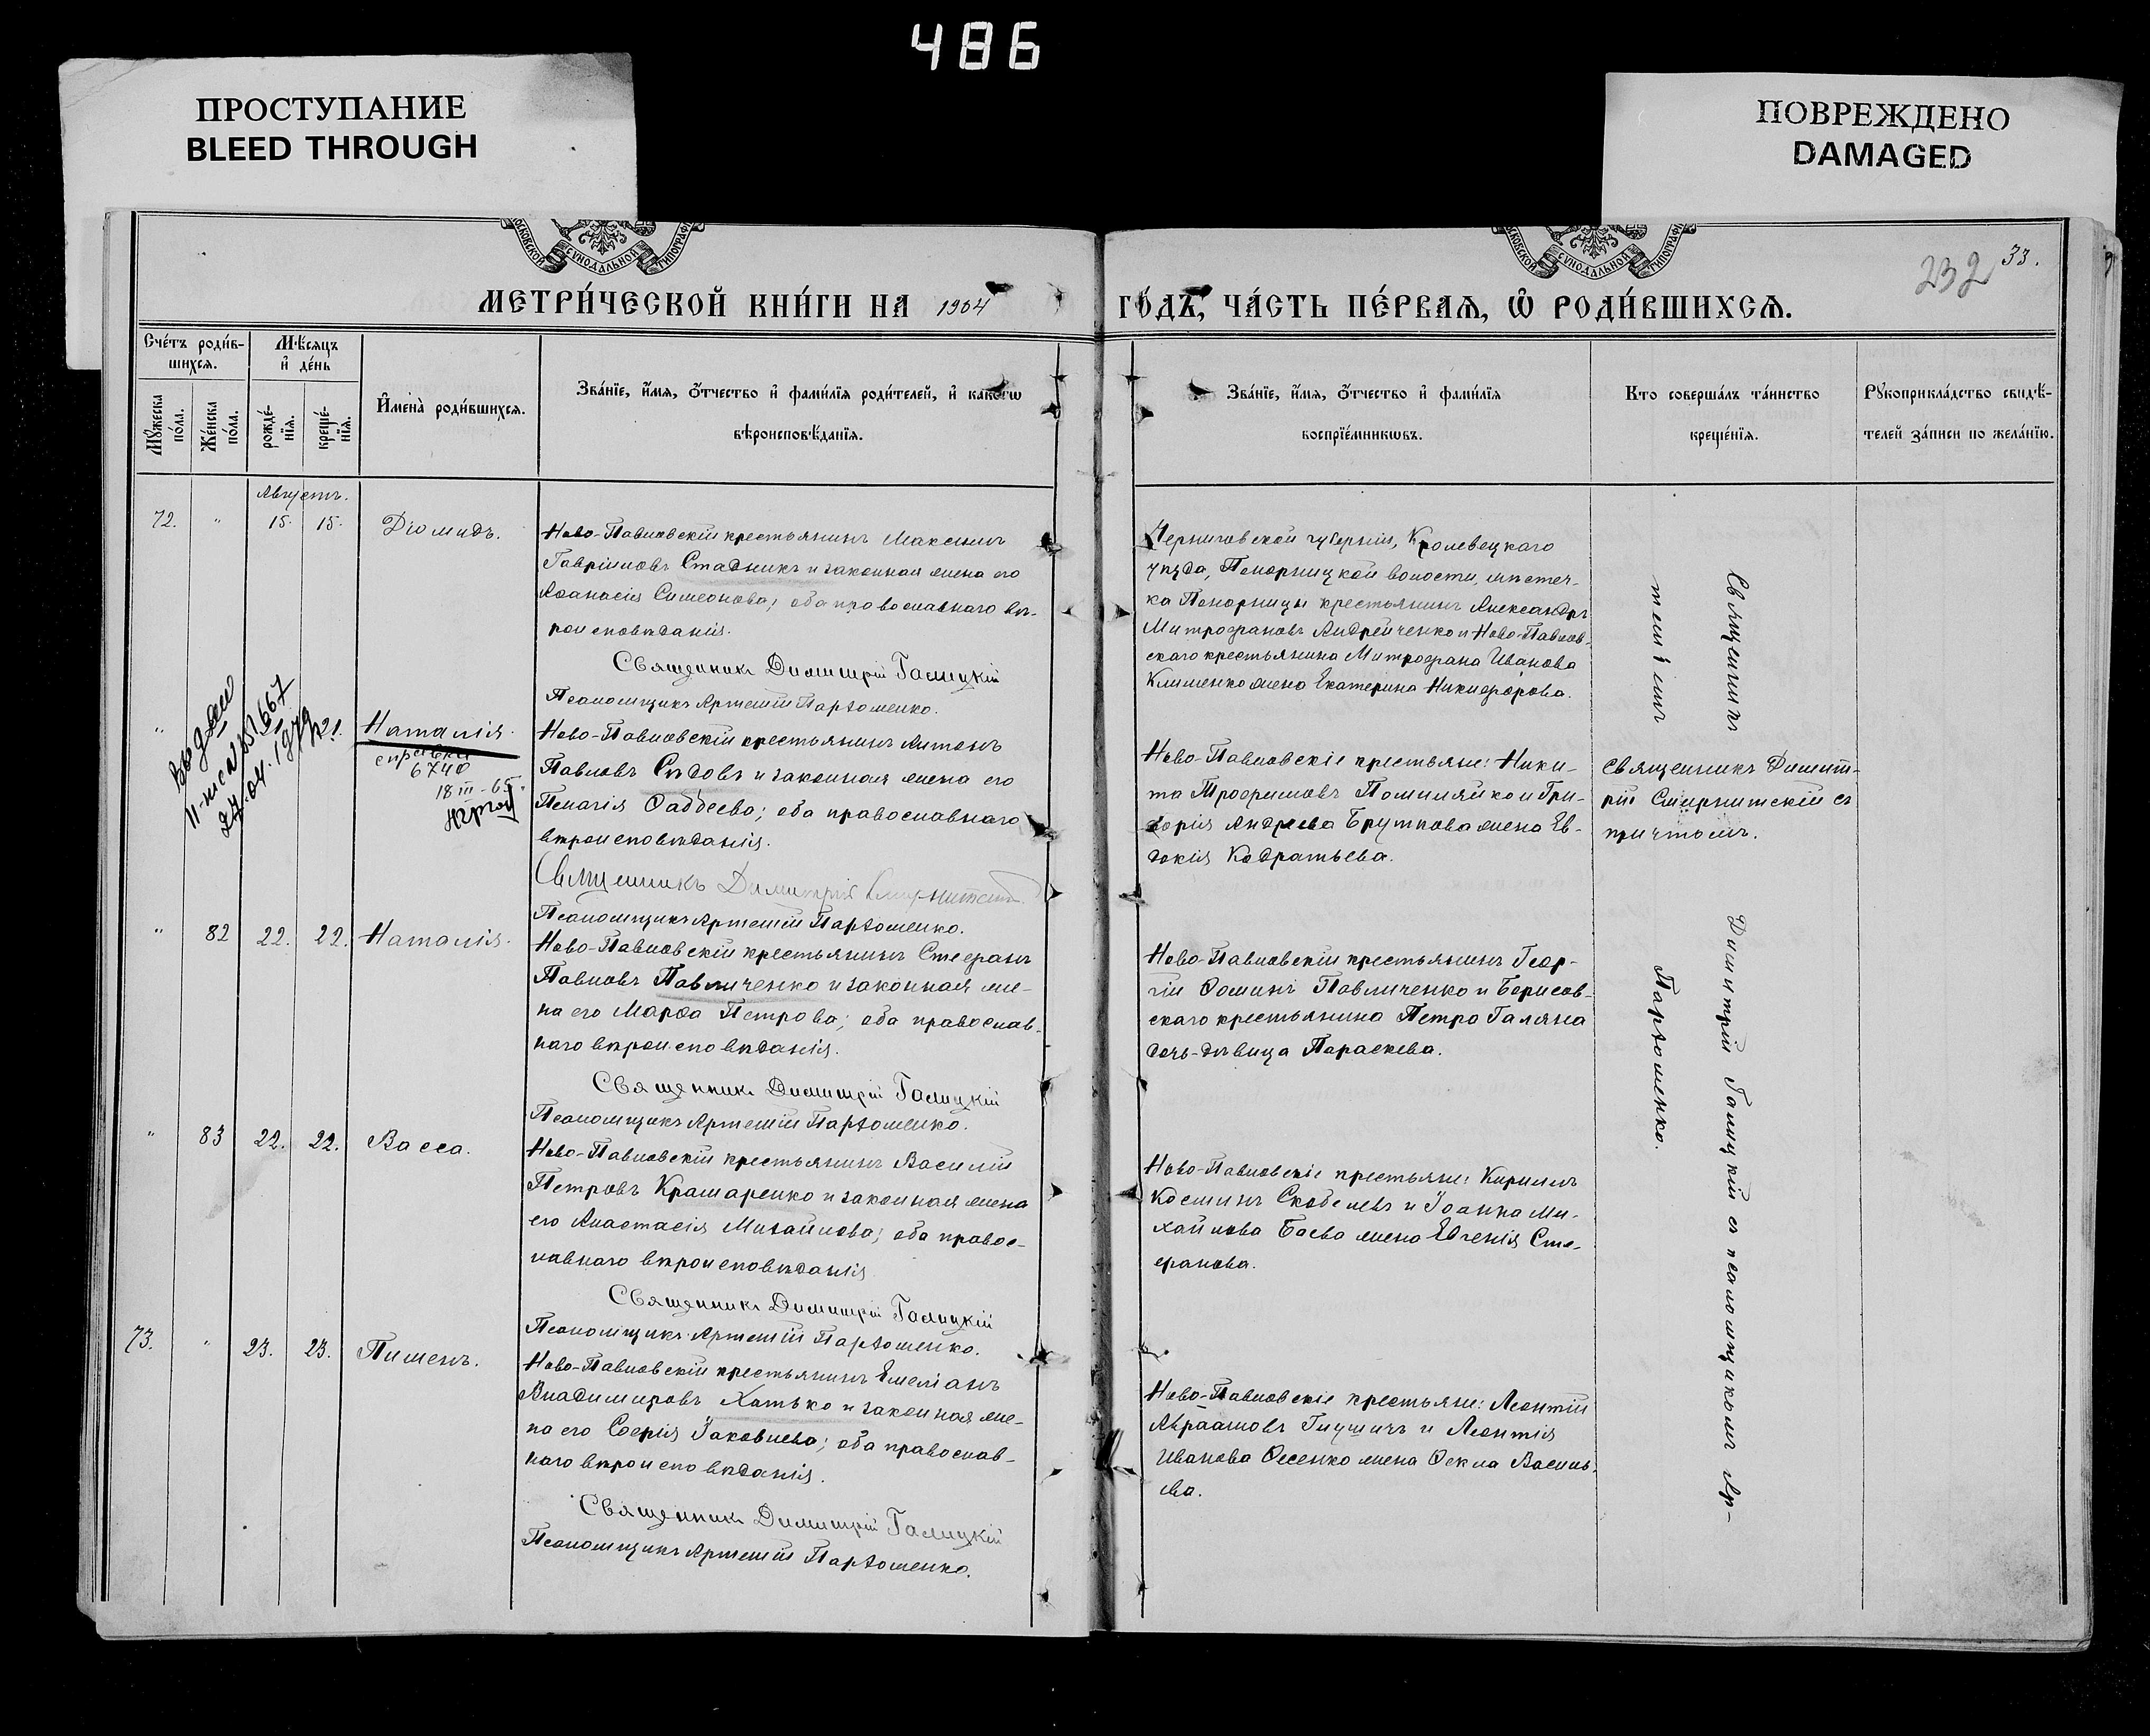 486
ПРОСТУПАНИЕ
BLEED THROUGH
ПОВРЕЖДЕНО
DAMAGED
СѴНОДАЛЬНОЙ ТИПОГРАФ
СѴНОДАЛЬНОЙ ТИПОГРАФ
232 33.
МЕТРИ́ЧЕСКОЙ КНИ́ГИ НА 1904
ГО́ДЪ, ЧА́СТЬ ПЕ́РВАЯ, Ѡ҆ РОДИ́ВШИХСЯ.
Сче́тъ роди́в-
шихся.
Мѣ́сяцъ
и҆ де́нь
Мꙋ́жеска
по́ла.
Же́нска
по́ла.
рожде́-
нїя.
креще́-
нїя.
И҆мена̀ роди́вшихся.
Зва́нїе, и҆́мя, ѻ҆́тчество и҆ фами́лїя роди́телей, и҆ како́гѡ
вѣроисповѣ́данїя.
Зва́нїе, и҆́мя, ѻ҆́тчество и҆ фами́лїя
воспрїе́мникѡвъ.
Кто соверша́лъ та́инство
креще́нїя.
Рꙋкоприкла́дство свидѣ́-
телей за́писи по жела́нїю.
Августъ.
72. " 15. 15. Діомидъ.
Ново-Павловскій крестьянинъ Максимъ
Гавріиловъ Стадникъ и законная жена его
Аѳанасія Симеонова; оба православнаго вѣ-
роисповѣданія.
Священникъ Димитрій Галицкій
Псаломщикъ Артемій Пархоменко.
Черниговской губерніи, Кролевецкаго
уѣзда, Понорницкой волости, мѣстеч-
ка Понорницы крестьянинъ Александръ
Митрофановъ Андрейченко и Ново-Павлов-
скаго крестьянина Митрофана Иванова
Клименко жена Екатерина Никифорова.
" 21. Наталія.
справка
6740
18 III-65.
27.04.1979
Ново-Павловскій крестьянинъ Антонъ
Павловъ Сѣдовъ и законная жена его
Пелагія Ѳаддеева; оба православнаго
вѣроисповѣданія.
Священникъ Димитрій Смирнитскій
Псаломщикъ Артемій Пархоменко.
Ново-Павловскіе крестьяне: Ники-
та Трофимовъ Помиляйко и Гри-
горія Андреева Бруткова жена Ев-
докія Кодратьева.
Священникъ Димит-
рій Смирнитскій съ
причтомъ.
" 82 22. 22. Наталія.
Ново-Павловскій крестьянинъ Стефанъ
Павловъ Павличенко и законная же-
на его Марѳа Петрова; оба православ-
наго вѣроисповѣданія.
Священникъ Димитрій Галицкій
Псаломщикъ Артемій Пархоменко.
Ново-Павловскій крестьянинъ Геор-
гій Ѳоминъ Павличенко и Борисов-
скаго крестьянина Петра Галяна
дочь-дѣвица Параскева.
" 83 22. 22. Васса.
Ново-Павловскій крестьянинъ Василій
Петровъ Крамаренко и законная жена
его Анастасія Михайлова; оба правос-
лавнаго вѣроисповѣданія
Священникъ Димитрій Галицкій
Псаломщикъ Артемій Пархоменко.
Ново-Павловскіе крестьяне: Кириллъ
Косминъ Скобелевъ и Іоанна Ми-
хайлова Баева жена Евгенія Сте-
фанова.
73. " 23. 23. Пименъ.
Ново-Павловскій крестьянинъ Емеліанъ
Владимировъ Хатько и законная же-
на его Софія Іаковлева; оба православ-
наго вѣроисповѣданія.
Священникъ Димитрій Галицкій
Псаломщикъ Артемій Пархоменко.
Ново-Павловскіе крестьяне: Леонтій
Авраамовъ Глушичъ и Леонтія
Иванова Ѳесенко жена Ѳекла Василь-
ева.
Священникъ Димитрій Галицкій съ псаломщикомъ Ар-
теміемъ Пархоменко.